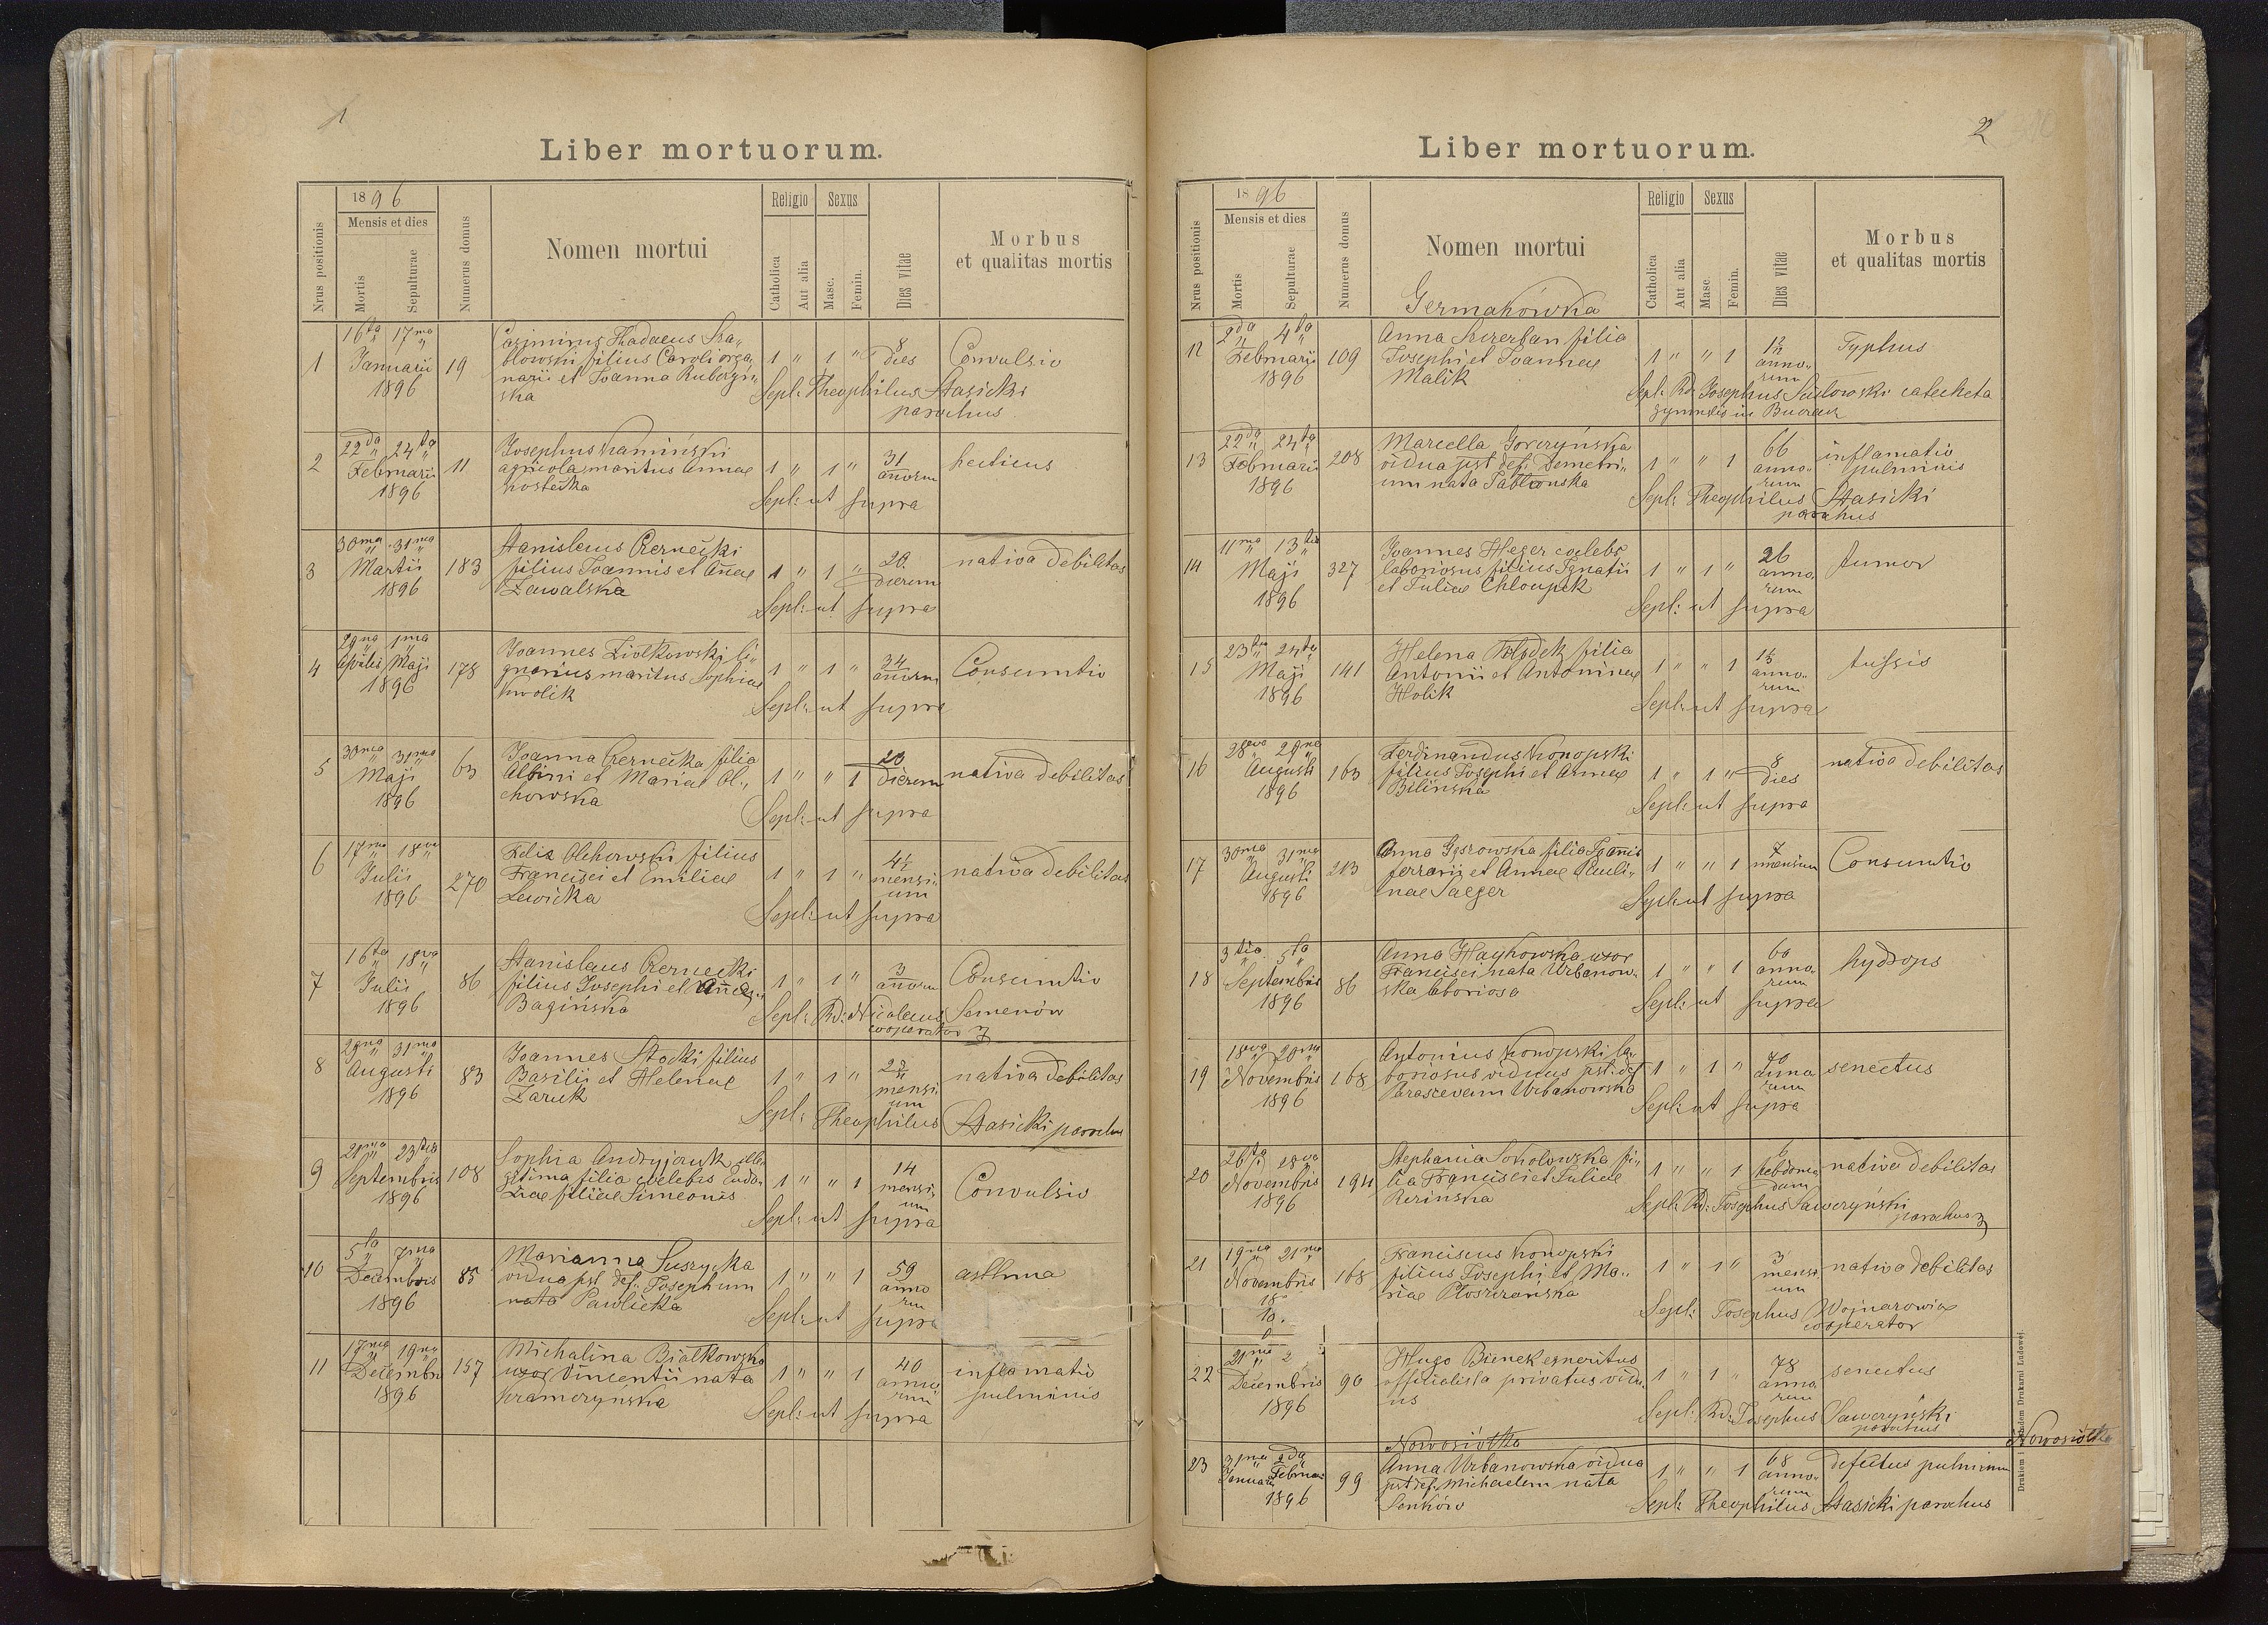 1
Liber mortuorum.
1896
Mensis et dies
Nrus positionis
Mortis
Sepulturae
Numerus domus
Nomen mortui
Religio
Sexus
Catholica
Aut alia
Masc.
Femin.
Dies vitae
Morbus
et qualitas mortis
1 16ta 17ma Januarii 1896 19
Casimirus Thadaeus Sta„
blowski filius Caroli orga„
narii et Joanna
ska
1 „ 1 „ 8 dies Convulsio
Sepl: Theophilus Stasicki
parochus
2 22da 24ta Februarii 1896 11
Josephus Kamiński
agricola maritus Annae
Kostecka
1 „ 1 „ 31 annorum hecticus
Sepl: ut supra
3 30ma 31ma Martii 1896 183
Stanislaus Czernecki
filius Joannis et Annae
Zawalska
1 „ 1 „ 20 dierum nativa debilitas
Sepl: ut supra
4 29na 1ma Aprilis Maji 1896 178
Joannes Ziołkowski li„
gnarius maritus Sophiae
Kwolik
1 „ 1 „ 34 annorum Consumtio
Sepl: ut supra
5 30ma 31ma Maji 1896 63
Joanna Czernecka filia
Albini et Mariae Ol„
chowska
1 „ „ 1 20 dierum nativa debilitas
Sepl: ut supra
6 17ma 18va Julii 1896 270
Felix Olchowski filius
Francisci et Emiliae
Lewicka
1 „ 1 „ 4½ mensi„
um nativa debilitas
Sepl: ut supra
7 16ta 18va Julii 1896 86
Stanislaus Czernecki
filius Josephi et Annae
Bagińska
1 „ 1 „ 3 annorum Consumtio
Sepl: Rd: Nicolaus Semenów
cooperator
8 29na 31ma Augusti 1896 83
Joannes Stocki filius
Basilii et Helenae
Zaruk
1 „ 1 „ mensi
um nativa debilitas
Sepl: Theophilus Stasicki parochus
9 21ma 23tia Septembris 1896 108
Sophia Andryjczuk ille„
gitima filia coelebis Eudo„
ziae filiae Simeonis
1 „ „ 1 14 mensi„
um Convulsio
Sepl: ut supra
10 5ta 7ma Decembris 1896 85
Marianna Suszycka
vidua pst. def. Josephum
nata Pawlicka
1 „ „ 1 59 anno
rum asthma
Sepl: ut supra
11 17ma 19na Decembris 1896 157
Michalina Białkowska
uxor Vincentii nata
Kramczyńska
1 „ „ 1 40 anno
rum inflamatio
pulminis
Sepl: ut supra
2
Liber mortuorum.
1896
Mensis et dies
Nrus positionis
Mortis
Sepulturae
Numerus domus
Nomen mortui
Religio
Sexus
Catholica
Aut alia
Masc
Femin.
Dies vitae
Morbus
et qualitas mortis
Germakówka
12 2da 4ta Februarii 1896 109
Anna Szczerban filia
Josephi et Joannae
Malik
1 „ „ 1 anno„
rum Typhus
Sepl: Rd Josephus catecheta
gymnasii in Buczacz
13 22da 24ta Februarii 1896 208
Marcella Gorczyńska
vidua pst def. Demetri„
um nata Jabłonska
1 „ „ 1 66 anno„
rum inflamatio
pulminis
Sepl: Theophilus Stasicki
parochus
14 11ma 13tia Maji 1896 327
Joannes Heger coelebs
laboriosus filius Ignatii
et Juliae Chloupek
1 „ 1 „ 26 anno„
rum tumor
Sepl: ut supra
15 23tia 24ta Maji 1896 141
Helena Kłodek filia
Antonii et Antoninae
Holik
1 „ „ 1 anno„
rum tussis
Sepl: ut supra
16 28va 29na Augusti 1896 163
Ferdinandus Konopski
filius Josephi et Annae
Bilinska
1 „ 1 „ 8 dies nativa debilitas
Sepl: ut supra
17 30ma 31ma Augusti 1896 213
Anna filia Joannis
ferrarii et Annae Pauli„
nae Jaeger
1 „ „ 1 7 mensium Consumtio
Sepl: ut supra
18 3tia 5ta Septembris 1896 86
Anna Haykowska uxor
Francisci nata Urbanow„
ska laboriosa
1 „ „ 1 60 anno„
rum hydrops
Sepl: ut supra
19 18va 20ma Novembris 1896 168
Antonius Konopski la„
boriosus viduus pst. def
Parascevam Urbanowska
1 „ 1 „ 70 anno
rum senectus
Sepl: ut supra
20 26ta 28va Novembris 1896 194
Stephania Sokołowska fi„
lia Francisci et Juliae
1 „ „ 1 6 hebdoma
dum nativa debilitas
Sepl: Rd: Josephus Sawczyński
parochus
21 19na 21ma Novembris 18 168
Franciscus Konopski
filius Josephi et Ma„
riae Płoszczanska
1 „ 1 „ 3 mensi
um nativa debilitas
Sepl: Josephus Wojnarowicz
cooperator
22 21ma 2 Decembris 1896 90
Hugo Bienek emeritus
officialista privatus vidu„
us
1 „ 1 „ 78 anno
rum senectus
Sepl: Rd: Josephus Sawczyński
parochus
Nowosiółka
Nowosiółka
23 31ma 2da Januarii Februarii 1896 99
Anna Urbanowska vidua
pst def. Michaelem nata
Senków
1 „ „ 1 68 anno„
rum defectus pulminum
Sepl: Theophilus Stasicki parochus